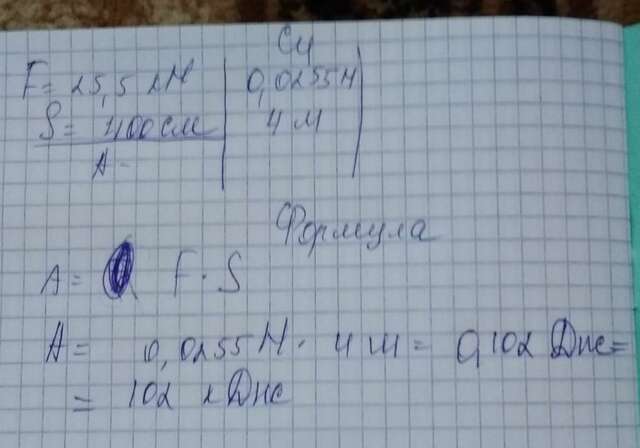 Си
F = 25,5 кН | 0,0255 Н
S = 400 см | 4 м
A -
Формула
A = F · S
A = 0,0255 Н · 4 м = 0,102 Дж =
= 102 кДж